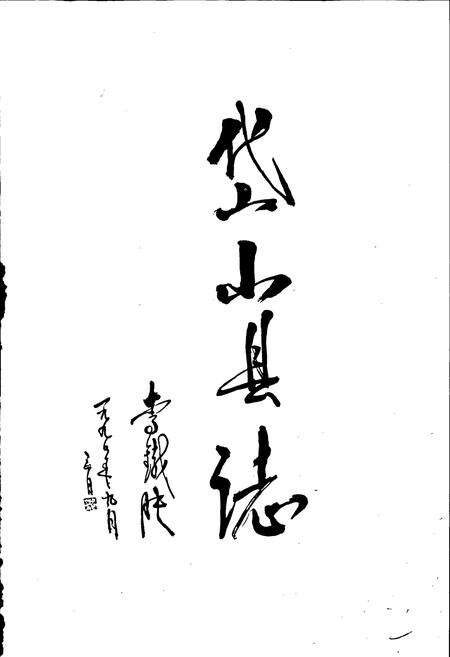 岱山县誌
李鐵映
一九九二年九月
三日